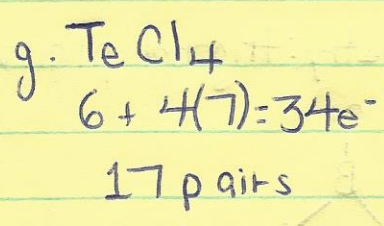 g. TeCl4
6 + 4(7) = 34e-
17 pairs